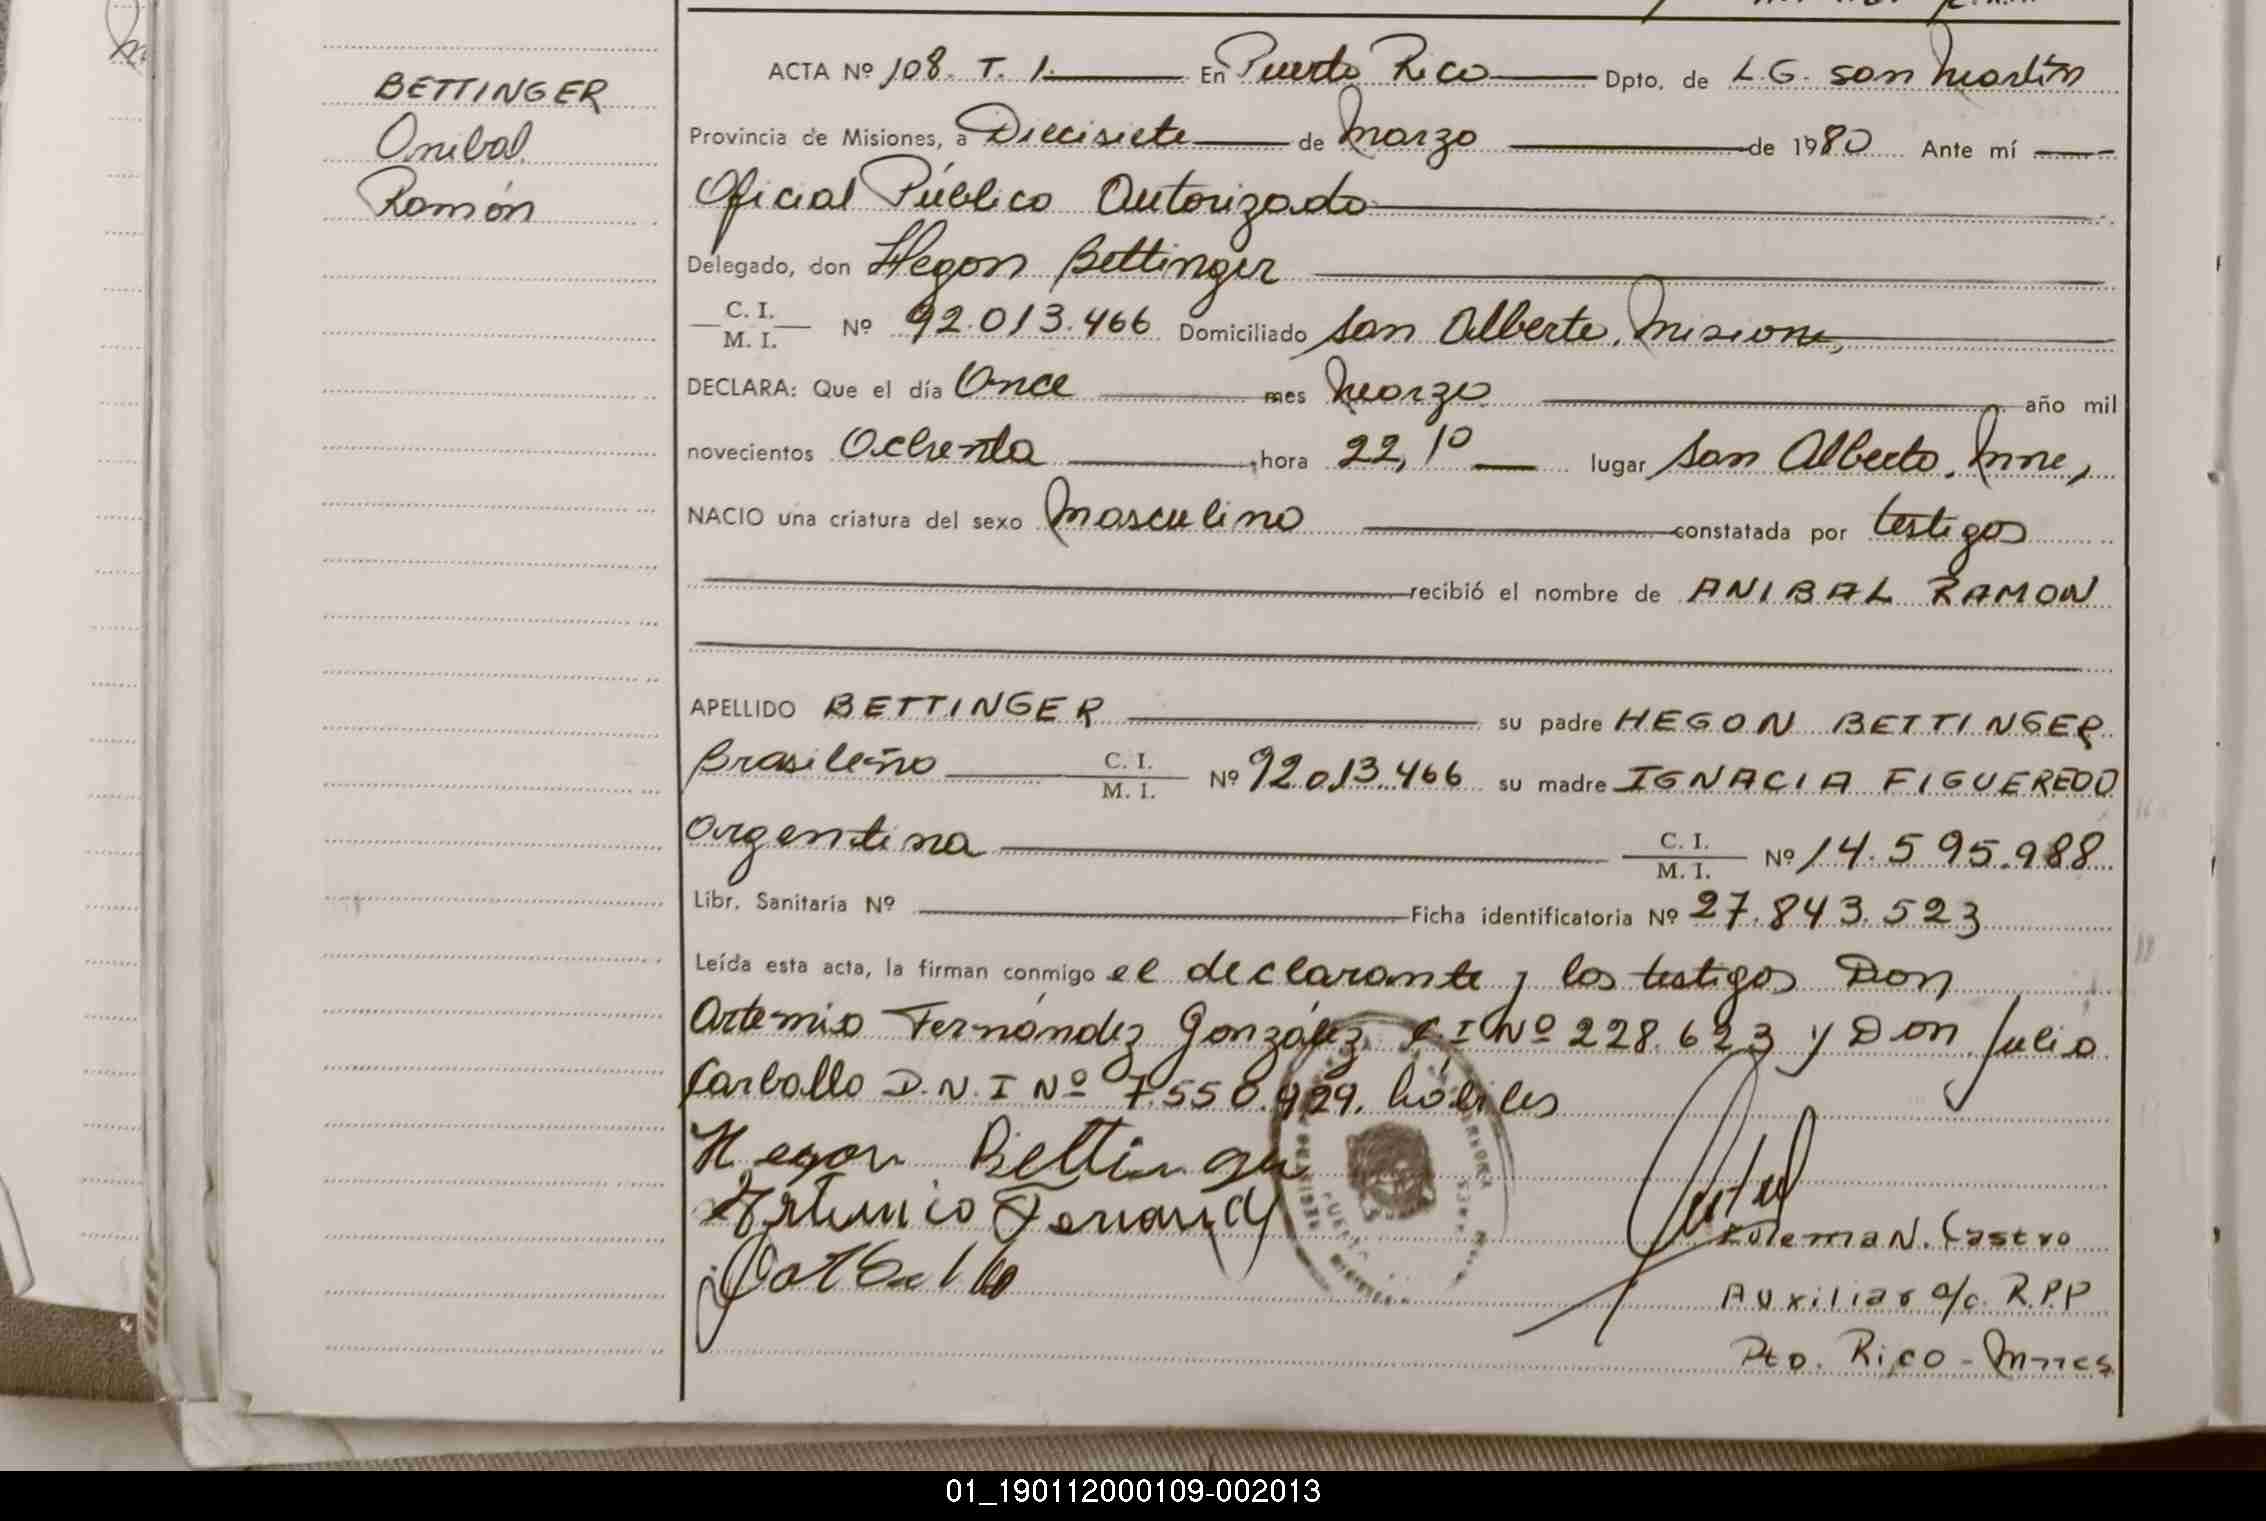 BETTINGER
Anibal
Ramón
ACTA Nº 108. T. 1. En Puerto Rico Dpto. de L.G. San Martín
Provincia de Misiones, a Diecisiete de Marzo de 1980 Ante mí
Oficial Público Autorizado
Delegado, don Hegon Bettinger
C. I.
M. I.
Nº 92.013.466 Domiciliado San Alberto. Misiones
DECLARA: Que el día Once mes Marzo año mil
novecientos Ochenta hora 22,10 lugar San Alberto. Mnes,
NACIO una criatura del sexo Masculino constatada por testigos
recibió el nombre de ANIBAL RAMON
APELLIDO BETTINGER su padre HEGON BETTINGER
Brasileño C. I.
M. I.
Nº 92.013.466 su madre IGNACIA FIGUEREDO
Argentina C. I.
M. I.
Nº 14.595.988
Libr. Sanitaria Nº Ficha identificatoria Nº 27.843.523
Leída esta acta, la firman conmigo el declarante y los testigos Don
Artemio Fernández González C I Nº 228.623 y Don Julio
Carballo D.N.I Nº 7.550.929. hábiles
Hegon Bettinger
Artemio Fernandez
J Carballo
Zulema N. Castro
Auxiliar a/c. R.P.P
Pto. Rico - Mnes
01_190112000109-002013